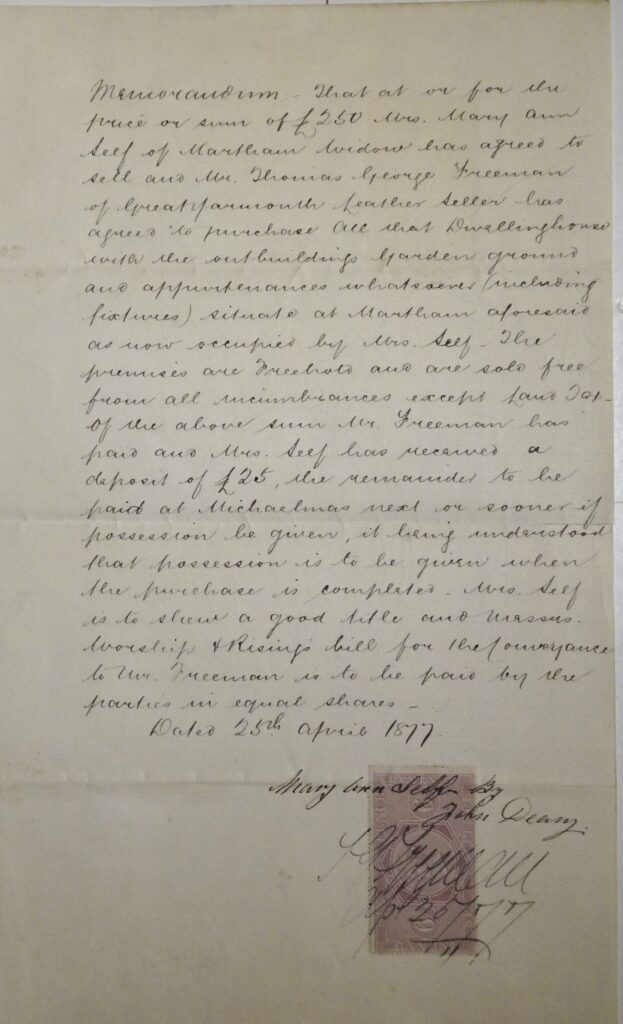 Memorandum - That at or for the
price or sum of £250 Mrs. Mary Ann
Self of Martham Widow has agreed to
sell and Mr. Thomas George Freeman
of Great Yarmouth Leather Seller has
agreed to purchase All that Dwellinghouse
with the outbuildings Garden ground
and appurtenances whatsoever (including
fixtures) situate at Martham aforesaid
as now occupied by Mrs. Self. The
premises are Freehold and are sold free
from all incumbrances except Land Tax -
Of the above sum Mr. Freeman has
paid and Mrs. Self has received a
deposit of £25, the remainder to be
paid at Michaelmas next or sooner if
possession be given, it being understood
that possession is to be given when
the purchase is completed. Mrs. Self
is to shew a good title and Messrs.
Worship & Risings bill for the Conveyance
to Mr. Freeman is to be paid by the
parties in equal shares -
Dated 25th April 1877.
Mary Ann Self By
John Deary.
Freeman
Apr 25/77